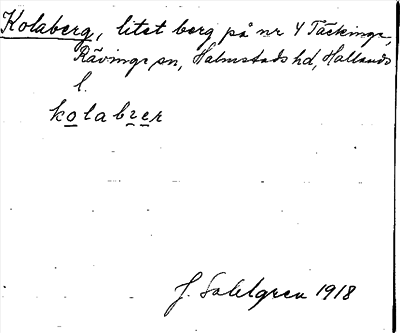 Kolaberg, litet berg på nr 4 Täckinge,
Rävinge sn, Halmstads hd, Hallands
l.
kolabrer
J. Sahlgren 1918